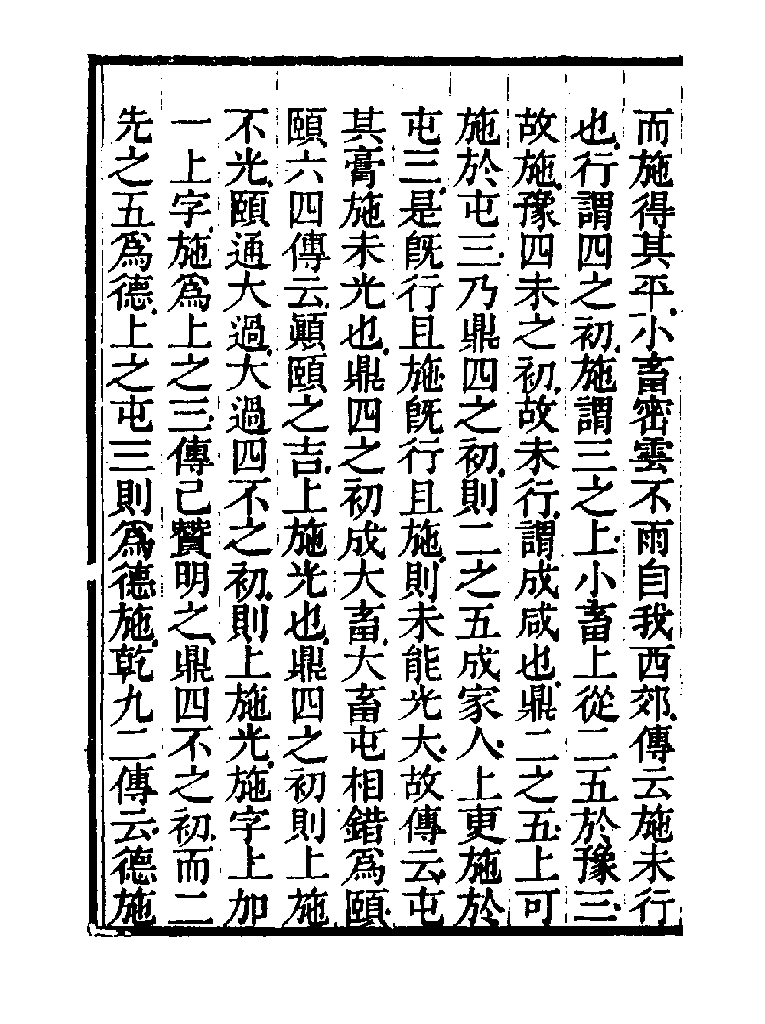 而施得其平小畜密雲不雨自我西郊傳云施未行
也行謂四之初施謂三之上小畜上從二五於豫三
故施豫四未之初故未行謂成咸也鼎二之五上可
施於屯三乃鼎四之初則二之五成家人上更施於
屯三是旣行且施旣行且施則未能光大故傳云屯
其膏施未光也鼎四之初成大畜大畜屯相錯爲頤
頤六四傳云顚頤之吉上施光也鼎四之初則上施
不光頤通大過大過四不之初則上施光施字上加
一上字施爲上之三傳己贊明之鼎四不之初而二
先之五爲德上之屯三則爲德施乾九二傳云德施